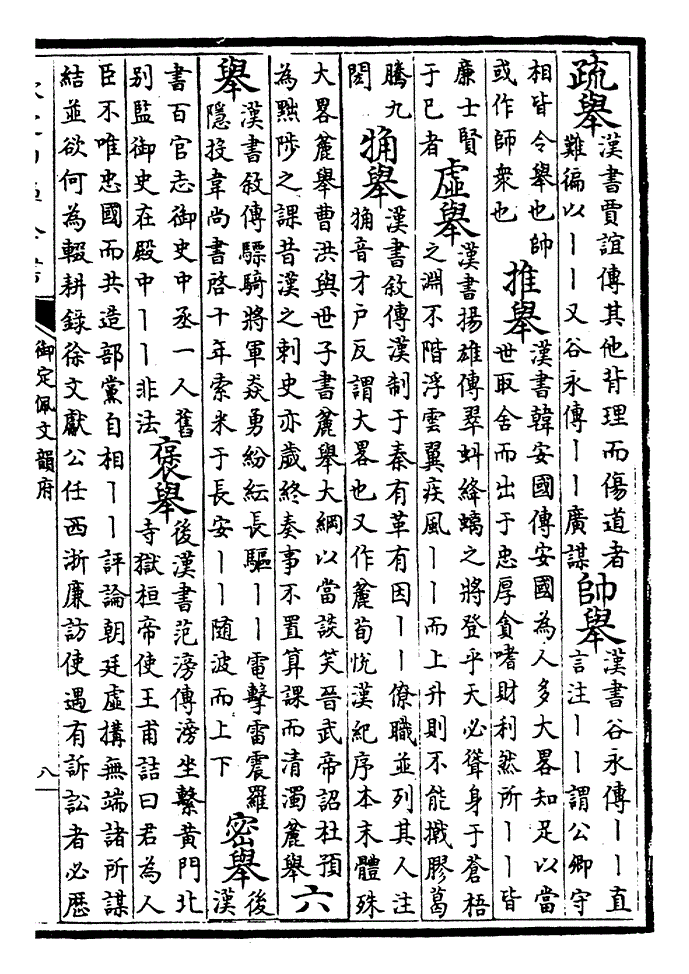 疏舉
漢書賈誼傳其他背理而傷道者
難徧以丨丨又谷永傳丨丨廣謀
帥舉
漢書谷永傳丨丨直
言注丨丨謂公卿守
相皆令舉也帥
或作師衆也
推舉
漢書韓安國傳安國為人多大畧知足以當
世取舍而出于忠厚貪嗜財利然所丨丨皆
廉士賢
于已者
虛舉
漢書揚雄傳翠虯絳螭之將登乎天必聳身于蒼梧
之淵不階浮雲翼疾風丨丨而上升則不能撠膠葛
騰九
閎
觕舉
漢書敘傳漢制于秦有革有因丨丨僚職並列其人注
觕音才戶反謂大畧也又作麄荀悅漢紀序本末體殊
大畧麄舉曹洪與世子書麄舉大綱以當談笑晉武帝詔杜預
為黜陟之課昔漢之刺史亦歲終奏事不置算課而清濁麄舉
六
舉
漢書敘傳驃騎將軍猋勇紛紜長驅丨丨電擊雷震羅
隱投韋尚書啓十年索米于長安丨丨随波而上下
密舉
後
漢
書百官志御史中丞一人舊
別監御史在殿中丨丨非法
褒舉
後漢書范滂傳滂坐繫黃門北
寺獄桓帝使王甫詰曰君為人
臣不唯忠國而共造部黨自相丨丨評論朝廷虛搆無端諸所謀
結並欲何為輟耕錄徐文獻公任西浙廉訪使遇有訴訟者必歷
御定佩文韻府
八